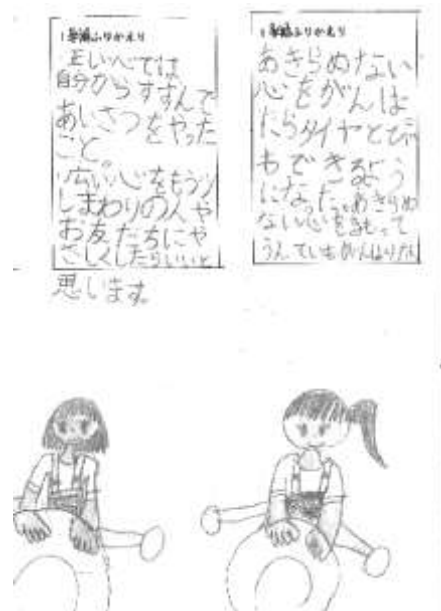 1学期ふりかえり
正しい心では
自分からすすんで
あいさつをやった
こと。
広い心をもう少
しまわりの人や
お友だちにや
さしくしたらいいと
思います。
1学期ふりかえり
あきらめない
心をがんば
たらタイヤとび
もできるよう
になった。あきらめ
ない心をもって
うんていもがんばりたい